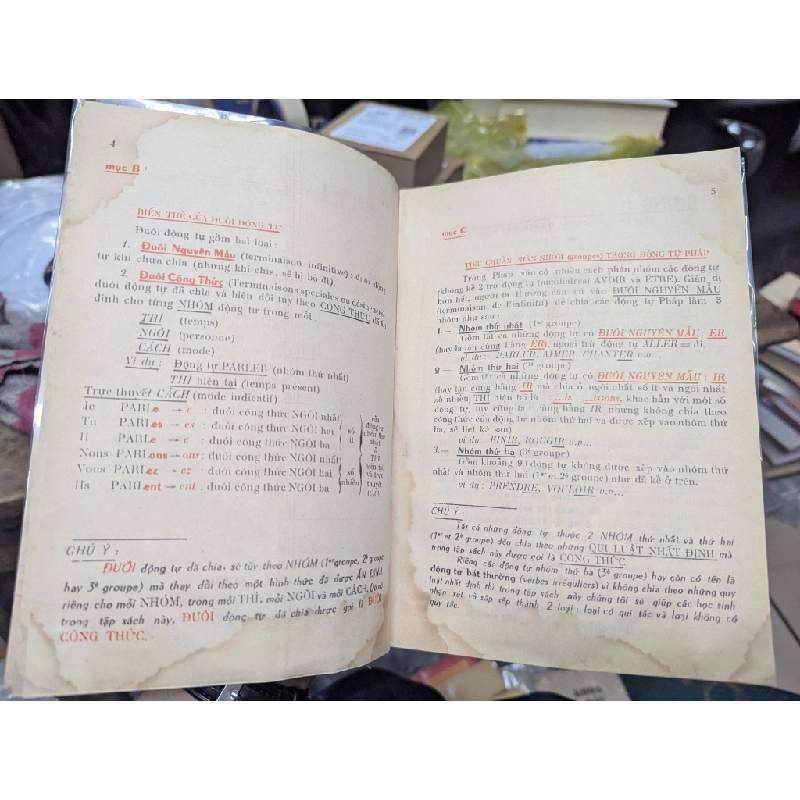 4
mục B
BIẾN THỂ CỦA ĐUÔI ĐỘNG TỪ
Đuôi động tự gồm hai loại :
1. Đuôi Nguyên Mẫu (terminaison infinitive) : đuôi động
tự khi chưa chia (nhưng khi chia, sẽ bị bỏ đi).
2. Đuôi Công Thức (Terminaisons spéciales ou
đuôi động tự đã chia và biến đổi tùy theo CÔNG THỨC đã ấn
định cho từng NHÓM động tự trong mỗi :
THÌ (temps)
NGÔI (personne)
CÁCH (mode)
Ví dụ : Động tự PARLER (nhóm thứ nhất)
THÌ hiện tại (temps présent)
Trực thuyết CÁCH (mode indicatif)
Je PARLe → e : đuôi công thức NGÔI nhất
Tu PARLes → es : đuôi công thức NGÔI hai
Il PARLe → e : đuôi công thức NGÔI ba
Nous PARLons → ons : đuôi công thức NGÔI nhất
Vous PARLez → ez : đuôi công thức NGÔI hai
Ils PARLent → ent : đuôi công thức NGÔI ba
số ít
số nhiều
của động tự nhóm thứ nhất ở THÌ hiện tại và trực thuyết CÁCH
CHÚ Ý :
ĐUÔI động tự đã chia, sẽ tùy theo NHÓM (1er groupe, 2e groupe
hay 3e groupe) mà thay đổi theo một hình thức đã được ẤN ĐỊNH
riêng cho mỗi NHÓM, trong mỗi THÌ, mỗi NGÔI và mỗi CÁCH. Do đó
trong tập sách này, ĐUÔI động tự đã chia được gọi là ĐUÔI
CÔNG THỨC.
5
mục C
TIÊU CHUẨN PHÂN NHÓM (groupes) TRONG ĐỘNG TỰ PHÁP
Trong Pháp văn có nhiều cách phân nhóm các động tự
(không kể 2 trợ động tự (auxiliaires) AVOIR và ÊTRE). Giản dị
hơn hết, người ta thường căn cứ vào ĐUÔI NGUYÊN MẪU
(terminaison de l'infinitif) để chia các động tự Pháp làm 3
nhóm như sau :
1. – Nhóm thứ nhất (1er groupe)
Gồm tất cả những động tự có ĐUÔI NGUYÊN MẪU : ER
(hay là tận cùng bằng ER), ngoại trừ động tự ALLER = đi.
ví dụ : PARLER, AIMER, CHANTER v.v...
2 – Nhóm thứ hai (2e groupe)
Gồm tất cả những động tự có ĐUÔI NGUYÊN MẪU : IR
(hay tận cùng bằng IR mà chia ở ngôi nhất số ít và ngôi nhất
số nhiều THÌ hiện tại là ...is ...issons, khác hẳn với một số
động tự, tuy cũng tận cùng bằng IR nhưng không chia theo
công thức của động tự nhóm thứ hai và được xếp vào nhóm thứ
ba, sẽ liệt kê sau)
ví dụ : FINIR, ROUGIR v.v...
3.– Nhóm thứ ba (3e groupe)
Gồm khoảng 90 động tự không được xếp vào nhóm thứ
nhất và nhóm thứ hai (1er et 2e groupe) như đã kể ở trên.
ví dụ : PRENDRE, VOULOIR v.v...
CHÚ Ý :
Tất cả những động tự thuộc 2 NHÓM thứ nhất và thứ hai
(1er et 2e groupe) đều chia theo những QUI LUẬT NHẤT ĐỊNH mà
trong tập sách này được gọi là CÔNG THỨC.
Riêng các động tự nhóm thứ ba (3e groupe) hay còn có tên là
động tự bất thường (verbes irréguliers) vì không chia theo những quy
luật nhất định thì trong tập sách này chúng tôi sẽ giúp các học sinh
nhận xét và sắp xếp thành 2 loại : loại có qui tắc và loại không có
quy tắc.